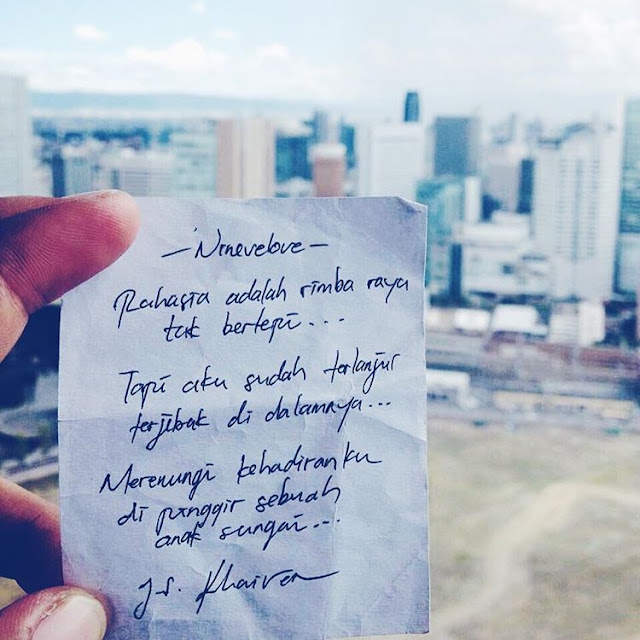 — Ninevelove —
Rahasia adalah rimba raya
tak bertepi...
Tapi aku sudah terlanjur
terjebak di dalamnya...
Merenungi kehadiranku
di pinggir sebuah
anak sungai...
J.S. Khairen